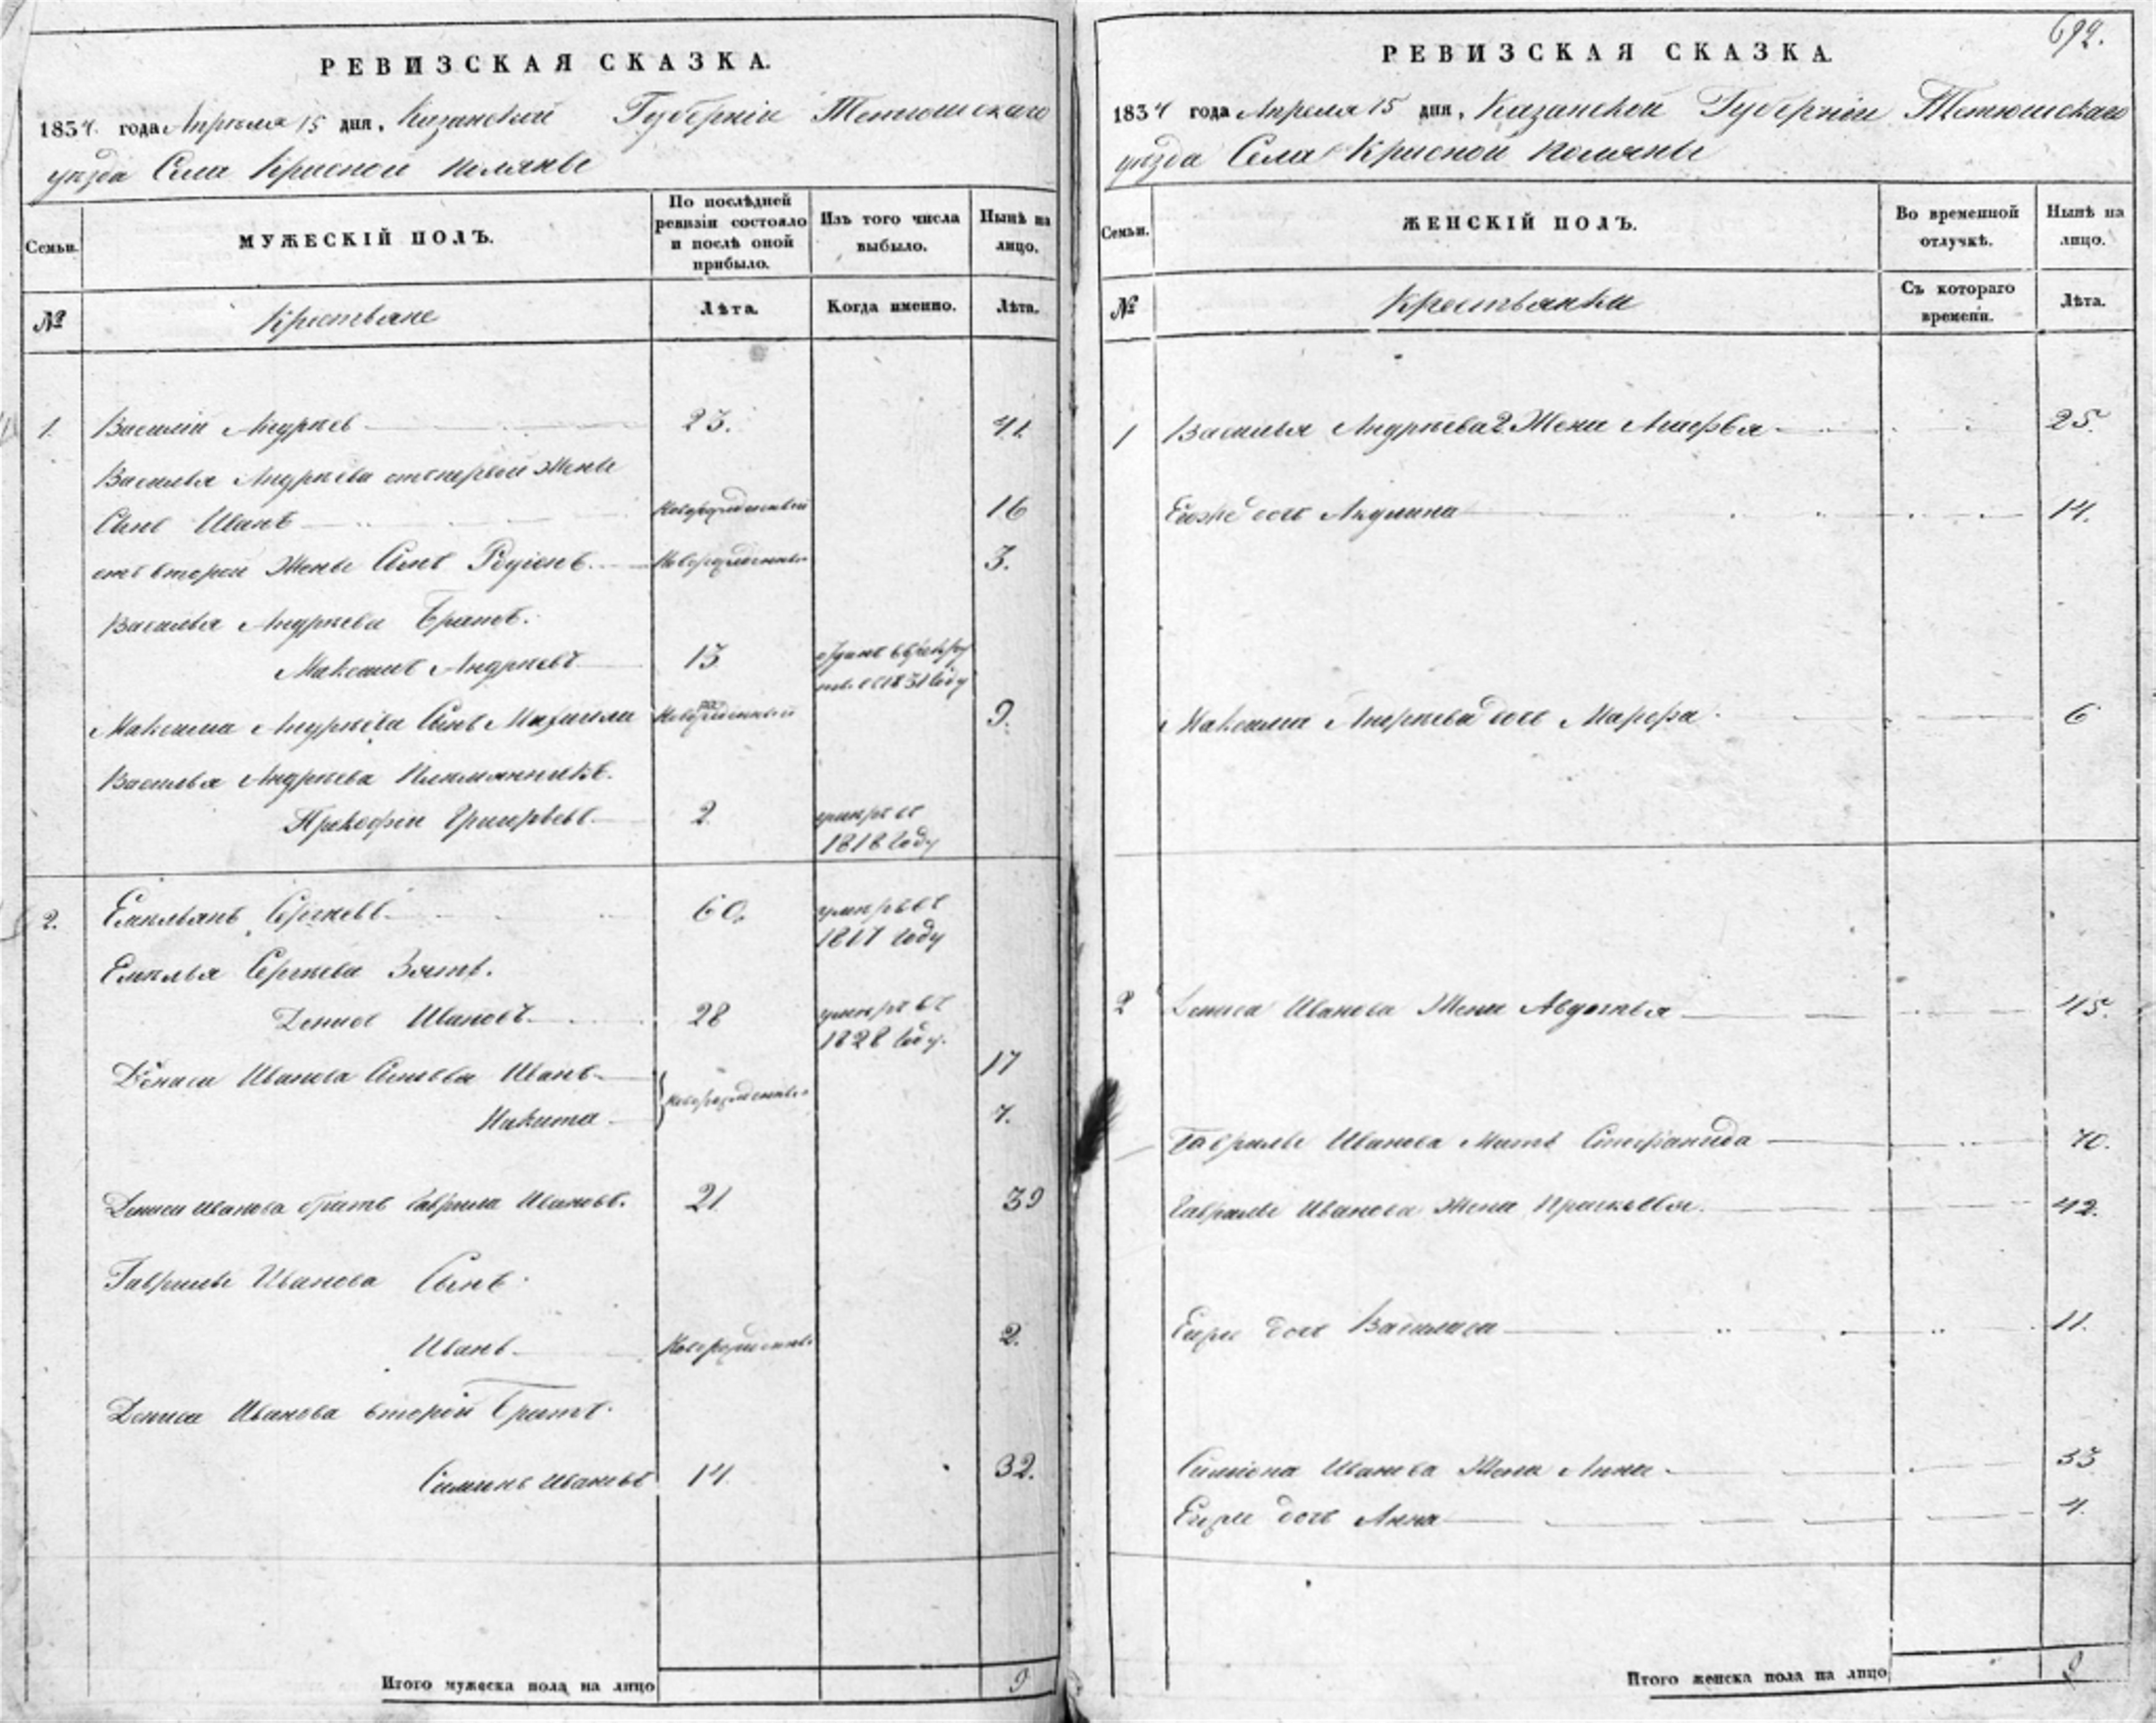 РЕВИЗСКАЯ СКАЗКА.
1834 года Апреля 15 дня, Казанской Губернiи Тетюшскаго
уезда Села Красной поляны
Семьи.
МУЖЕСКІЙ ПОЛЪ.
По послѣдней ревизіи состояло и послѣ оной прибыло.
Изъ того числа выбыло.
Нынѣ на лицо.
№
Крестьяне
Лѣта.
Когда именно.
Лѣта.
1. Василій Андреев 23. 41.
Василья Андреева отъ первой жены
Сынъ Иванъ Новорожденный 16
отъ второй жены Сынъ Новорожденный 3.
Василья Андреева Братъ.
Максимъ Андреевъ 13 отданъ в рекруты в 1831 году
Максима Андреева Сынъ Новорожденный 9.
Василья Андреева Племянникъ.
Прокофій Григорьевъ 2 умеръ въ
1818 году
2. Емельянъ Сергеевъ 60. умеръ въ
1817 году
Емелья Сергеева Зять.
Денисъ Ивановъ 28 умеръ въ
1828 году.
Дениса Иванова Сыновья Иванъ Новорожденные 17
Никита 7.
Дениса Иванова братъ Гаврила Ивановъ. 21. 39
Гаврилы Иванова Сынъ
Иванъ Новорожденный 2.
Дениса Иванова второй Братъ.
Симионъ Ивановъ 14. 32.
Итого мужеска пола на лицо 9
692.
РЕВИЗСКАЯ СКАЗКА.
1834 года Апреля 15 дня, Казанской Губернiи Тетюшскаго
уезда Села Красной поляны
Семьи.
ЖЕНСКІЙ ПОЛЪ.
Во временной отлучкѣ.
Нынѣ на лицо.
№
Крестьянки
Съ котораго времени.
Лѣта.
1 Василья Андреева 2 Жена 25.
Его же дочь Акулина 14.
Максима Андреева дочь Марфа 6
2 Дениса Иванова Жена Авдотья 45.
Гаврилы Иванова Мать Стефанида 70.
Гаврилы Иванова Жена Прасковья. 42.
Его же дочь Василиса 11.
Симиона Иванова Жена Анна 33
Его же дочь Анна 4.
Итого женска пола на лицо 9